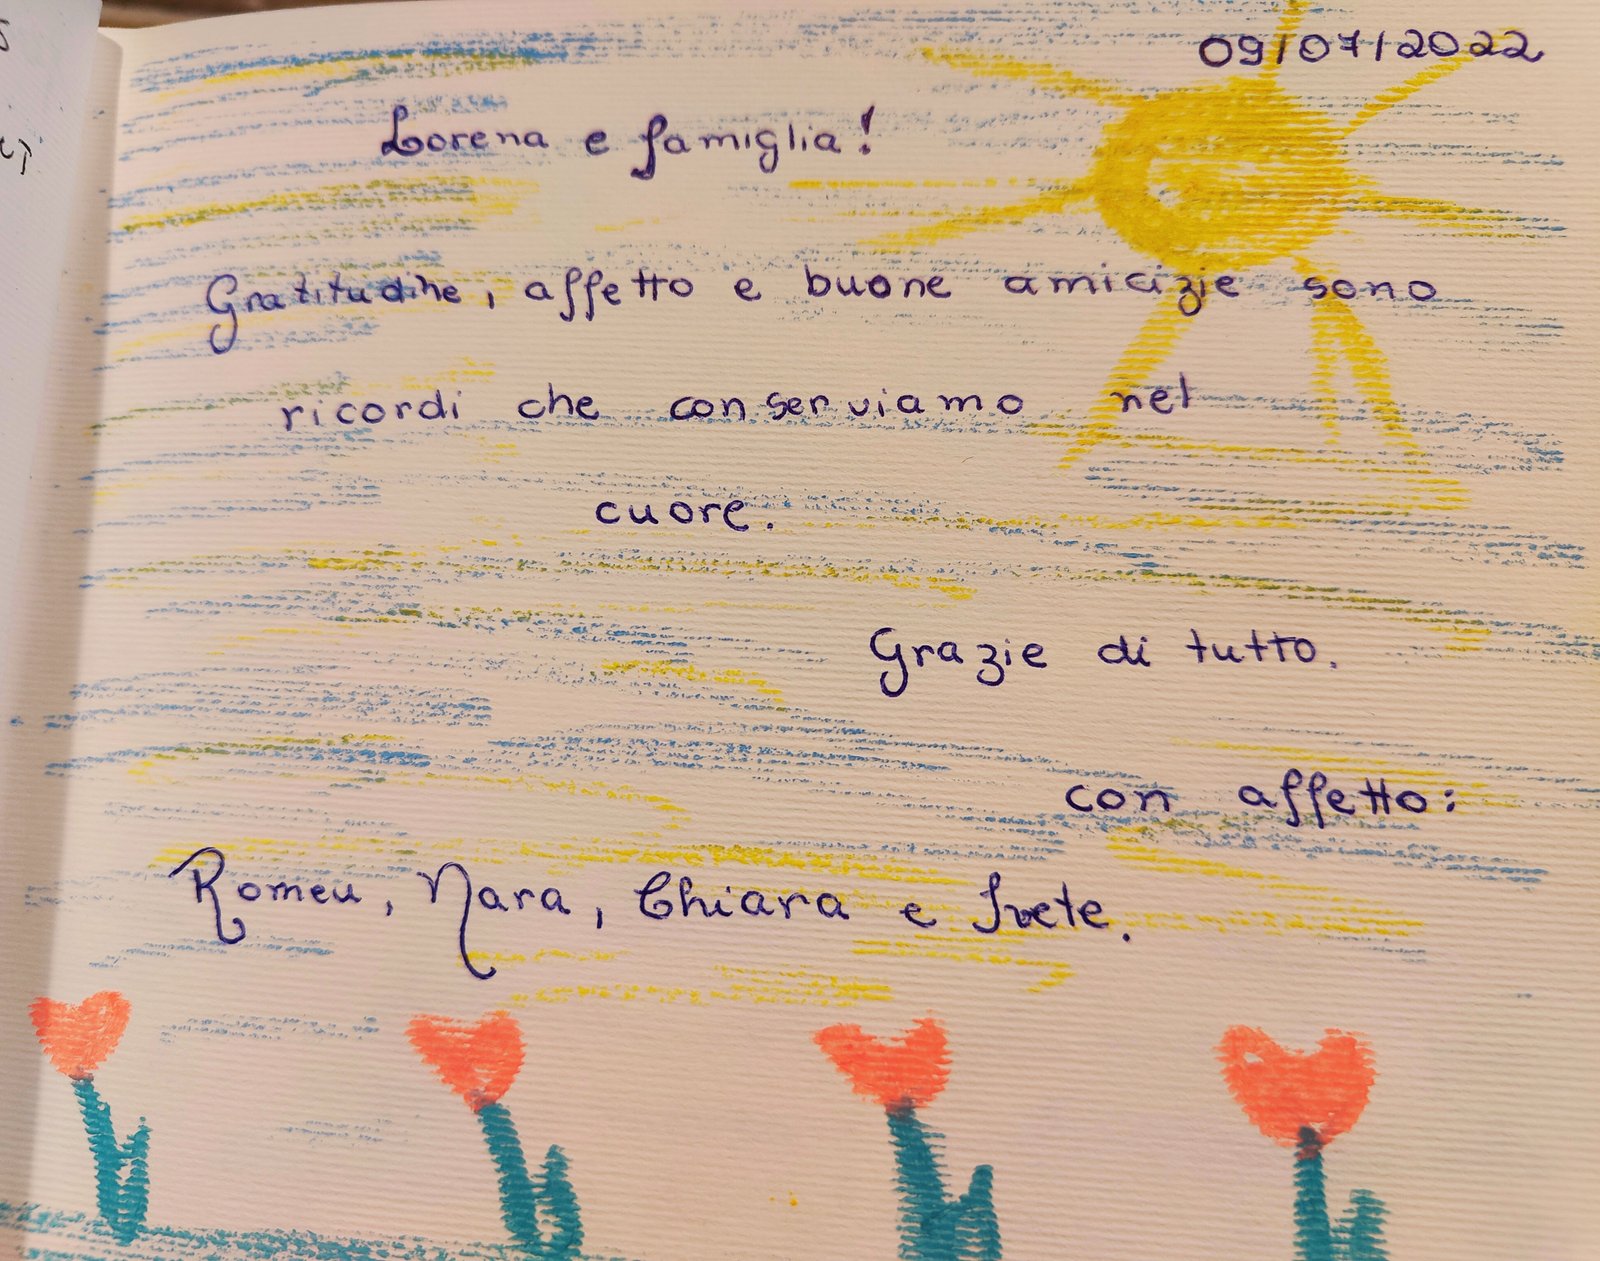 09/07/2022
Lorena e famiglia!
Gratitudine, affetto e buone amicizie sono
ricordi che conserviamo nel
cuore.
Grazie di tutto.
con affetto:
Romeu, Nara, Chiara e Ivete.